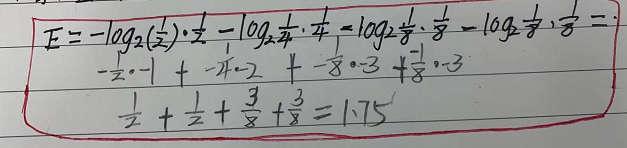 E = -log₂(1/2)·1/2 - log₂ 1/4 · 1/4 - log₂ 1/8 · 1/8 - log₂ 1/8 · 1/8 =
-1/2 · -1 + -1/4 · -2 + -1/8 · -3 + -1/8 · -3
1/2 + 1/2 + 3/8 + 3/8 = 1.75